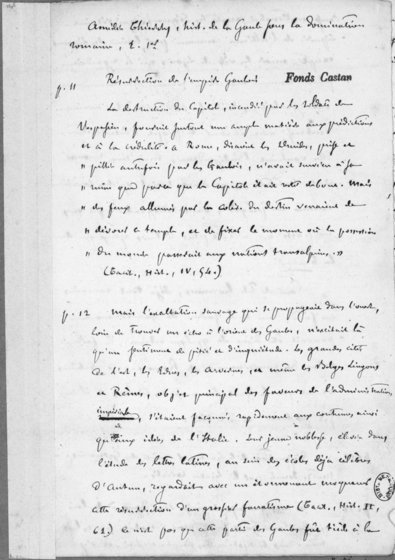 Amédée Thierry, hist. de la Gaule sous la domination
romaine, t. 1er
p. 11 Résurrection de l'empire Gaulois Fonds Castan
La destruction du Capitole, incendié par les soldats de
Vespasien, fournit surtout une ample matière aux prédictions
et à la crédulité. « Rome, disaient les Druides, prise et
" pillée autrefois par les Gaulois, n'avait survécu à sa
" ruine que parce que le Capitole était resté debout. Mais
" des feux allumés par la colère du destin venaient de
" dévorer le temple, et de fixer le moment où la possession
" du monde passerait aux nations transalpines. »
(Tacit., Hist., IV, 54.)
p. 12 Mais l'exaltation sauvage qui se propageait dans l'ouest,
loin de trouver un écho à l'orient des Gaules, n'excitait là
qu'un sentiment de pitié et d'inquiétude. Les grandes cités
de l'est, les Édues, les Arvernes, et même les Belges Lingons
et Rèmes, objet principal des faveurs de l'administration
impériale, s'étaient façonnés rapidement aux coutumes ainsi
qu'aux idées de l'Italie. Leur jeune noblesse, élevée dans
l'étude des lettres latines, au sein des écoles déjà célèbres
d'Autun, regardait avec un étonnement moqueur
cette résurrection d'un grossier fanatisme (Tacit., Hist. II,
61.) Ce n'est pas que cette partie des Gaules fût tiède à la